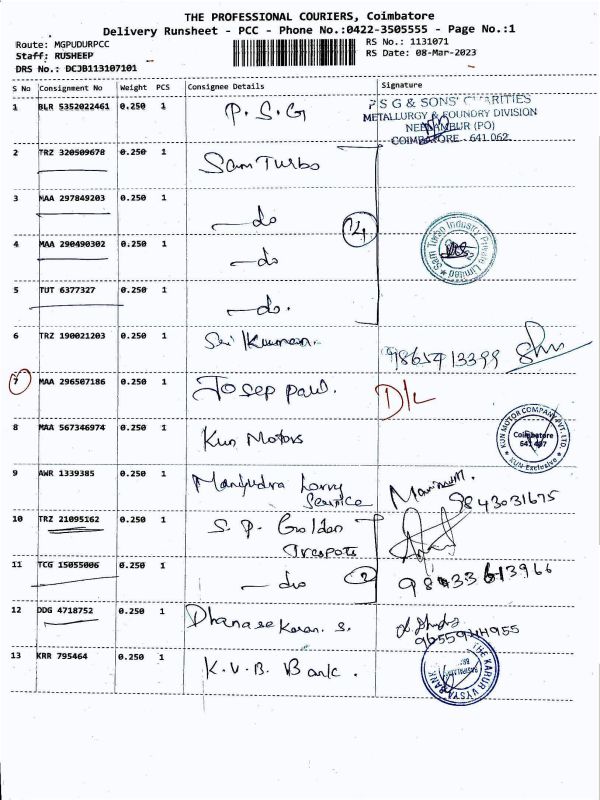 THE PROFESSIONAL COURIERS, Coimbatore
Delivery Runsheet - PCC - Phone No.:0422-3505555 - Page No.:1
Route: MGPUDURPCC
Staff: RUSHEEP
DRS No.: DCJB113107101
RS No.: 1131071
RS Date: 08-Mar-2023
S No Consignment No Weight PCS Consignee Details Signature
1 BLR 5352022461 0.250 1 P.S.G
P S G & SONS' CHARITIES
METALLURGY & FOUNDRY DIVISION
NEELAMBUR (PO)
COIMBATORE - 641 062
2 TRZ 320509678 0.250 1 Sam Turbo
3 MAA 297849203 0.250 1 —do
4 MAA 290490302 0.250 1 —do
Sam Turbo Industry Private Limited
5 TUT 6377327 0.250 1 —do.
6 TRZ 190021203 0.250 1 Sri Kumaran.
7 MAA 296507186 0.250 1 Josep paul. D/L
8 MAA 567346974 0.250 1 Kun Motors
KUN MOTOR COMPANY PVT. LTD.
Coimbatore
641 407
KUN Exclusive
9 AWR 1339385 0.250 1 Manjudra Lorry
Service
9843031675
10 TRZ 21095162 0.250 1 S.P. Golden
Trespots
11 TCG 15055006 0.250 1 —do 2
12 DDG 4718752 0.250 1 Dhanasekaran. S.
9655944955
13 KRR 795464 0.250 1 K.V.B. Bank.
THE KARUR VYSYA BANK